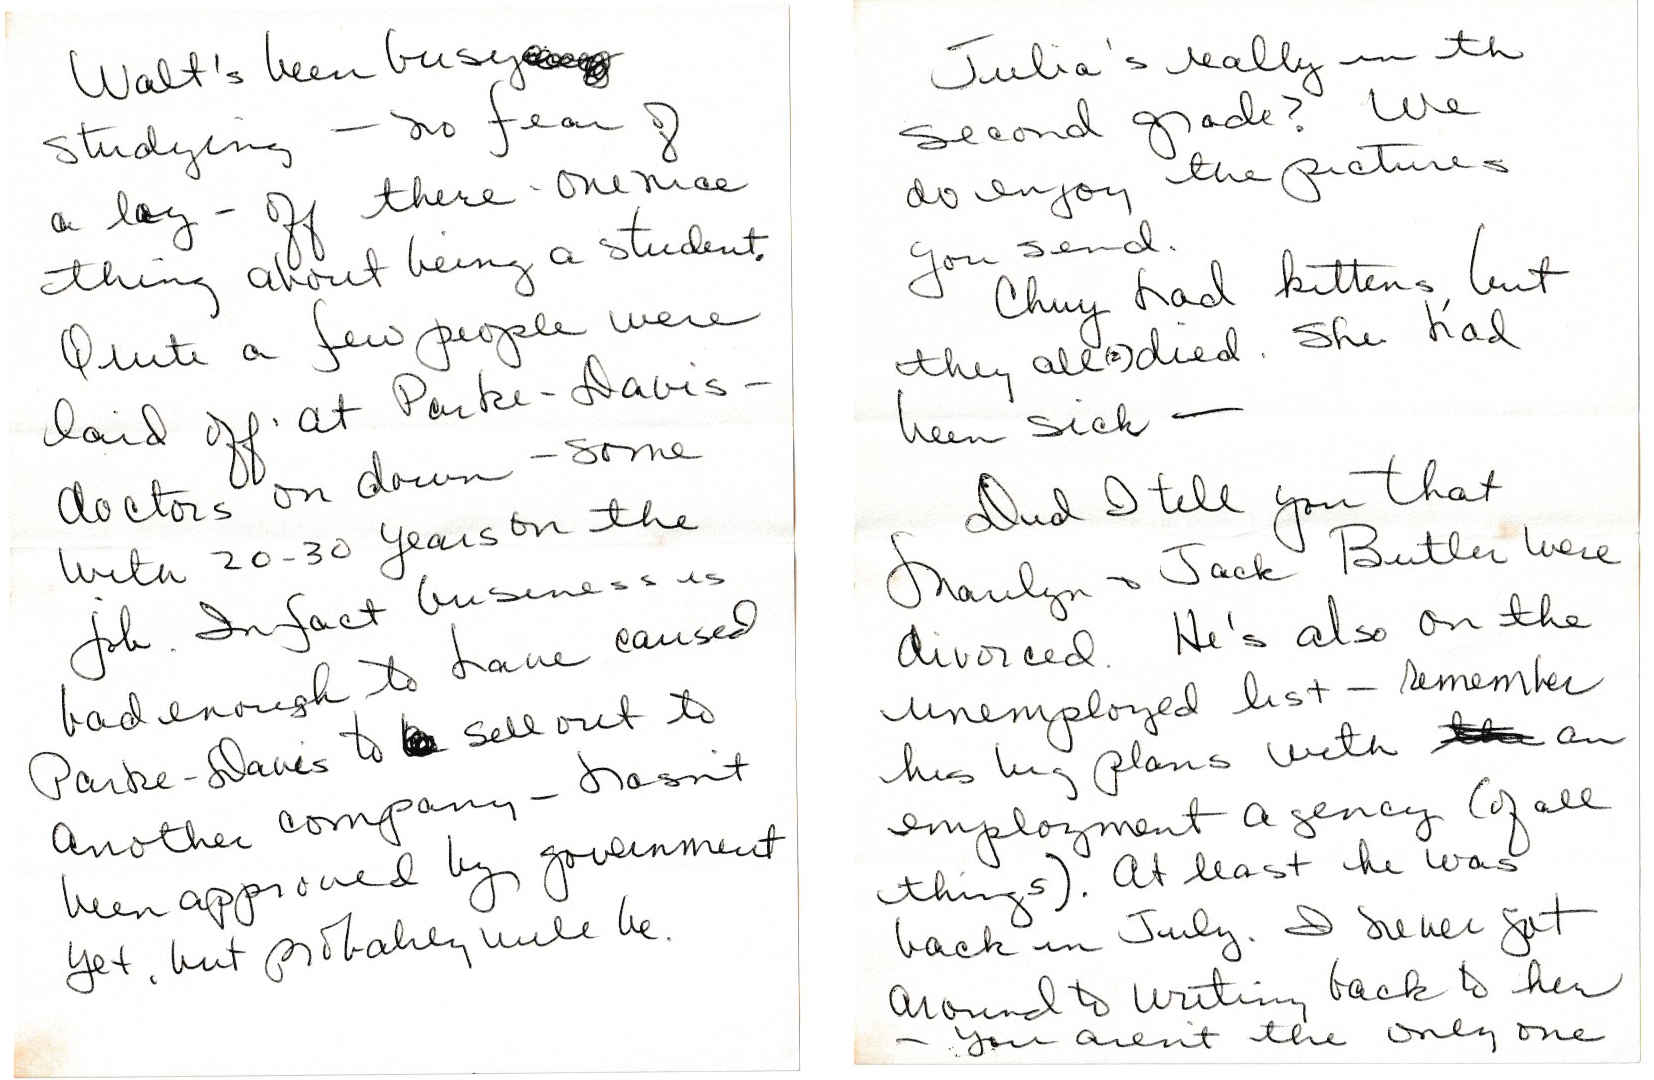 Walt's been busy
studying — no fear of
a lay-off there - one nice
thing about being a student.
Quite a few people were
laid off at Parke-Davis —
doctors on down — some
with 20-30 years on the
job. In fact business is
bad enough to have caused
Parke-Davis to sell out to
another company — hasn't
been approved by government
yet, but probably will be.
Julia's really in th
second grade? We
do enjoy the pictures
you send.
Chuy had kittens, but
they all (2) died. She had
been sick —
Did I tell you that
Marilyn & Jack Butler were
divorced. He's also on the
unemployed list — remember
his big plans with an
employment agency (of all
things). At least he was
back in July. I never got
around to writing back to her
— you aren't the only one